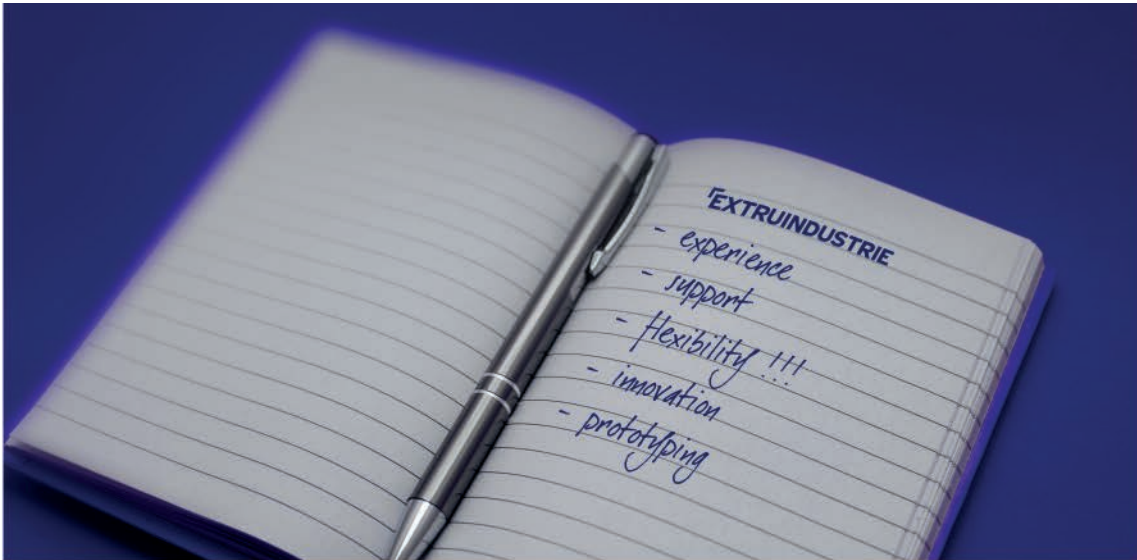 EXTRUINDUSTRIE
- experience
- support
- flexibility !!!
- innovation
- prototyping